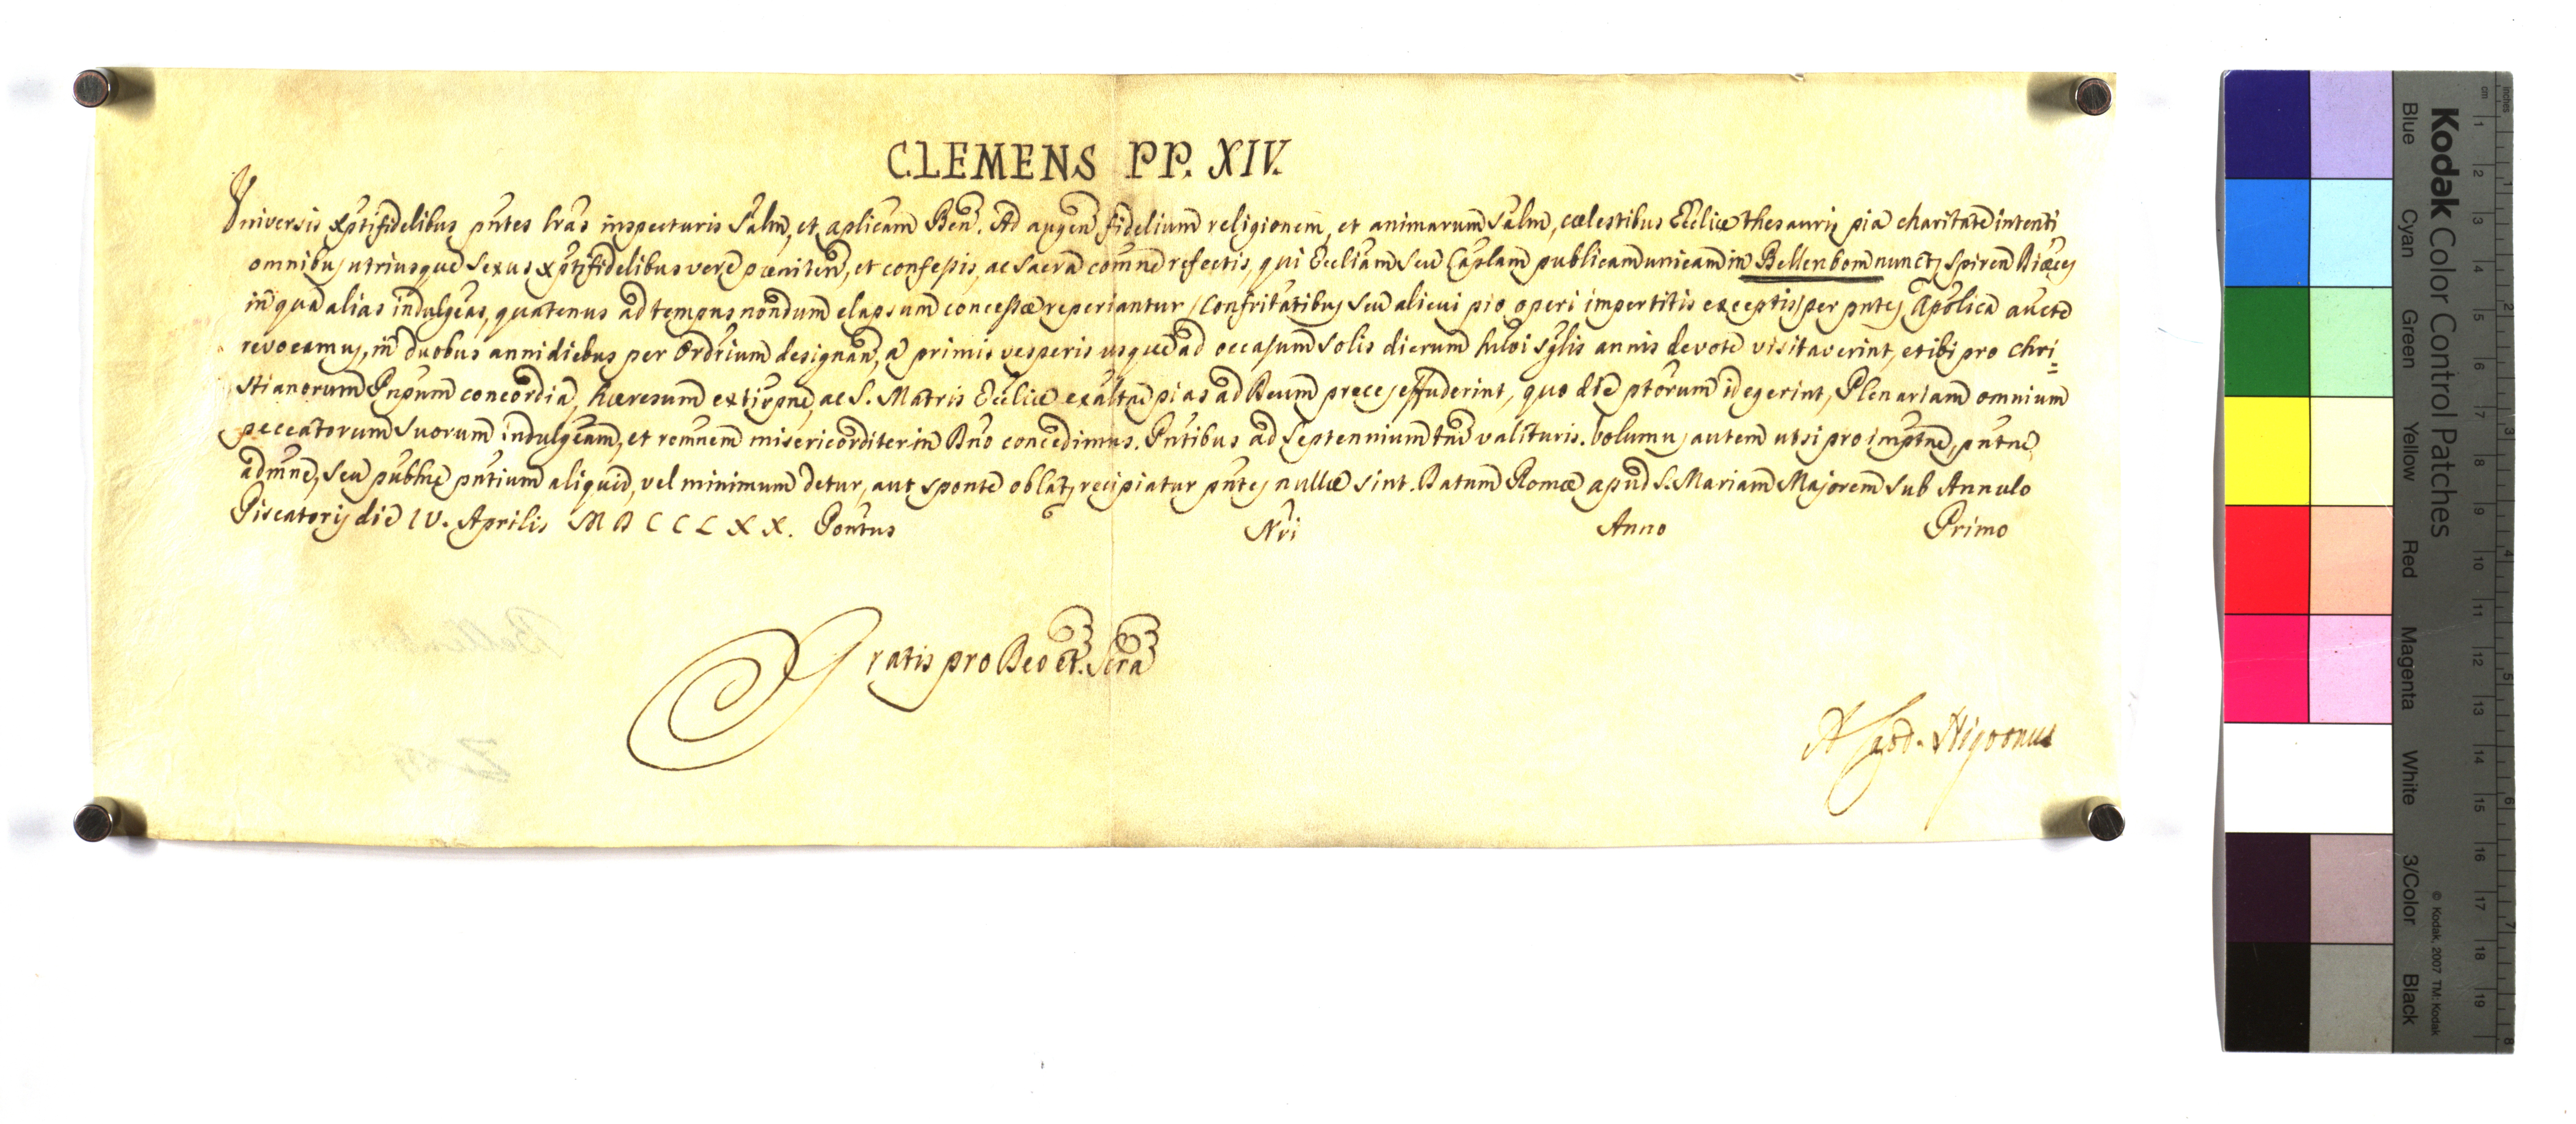 CLEMENS PP. XIV.
Universis Xptifidelibus pñtes lras inspecturis Salm, et aplicam Ben. Ad augen fidelium religionem, et animarum Salm, cœlestibus Ecclie thesauris pia charitate intenti
omnibus utriusque sexus Xptifidelibus vere pœniten, et confessis, ac Sacra comne refectis, qui Eccliam seu Caplam publicam unicam in Bellenbom nunc Spiren Diæcs
in qua alias indulgeas, quatenus ad tempus nondum elapsum concessæ reperiantur / Confritatibus seu alicui pio operi impertitis exceptis / per pntes Apolica aucte
revocamus, in duobus anni diebus per Ordrium designan, a primis vesperis usque ad occasum Solis dierum huioi sglis annis devote visitaverint, et ibi pro Chri=
stianorum Pnpum concordia, hæresum extirpne, ac S. Matris Ecclie exaltne pias ad Deum preces effuderint, quo die ptorum id egerint, Plenariam omnium
peccatorum suorum indulgeam, et remnem misericorditer in Dno concedimus. Pntibus ad Septennium tm valituris. Volumus autem ut si pro imptne, pntne
admne, seu publne pntium aliquid, vel minimum detur, aut sponte oblat, recipiatur pntes nullæ sint. Datum Romæ apud S. Mariam Majorem sub Annulo
Piscatoris die IV. Aprilis MDCCLXX. Pontus Nri Anno Primo
Gratis pro Deo et Scra
A Card. Nigronus